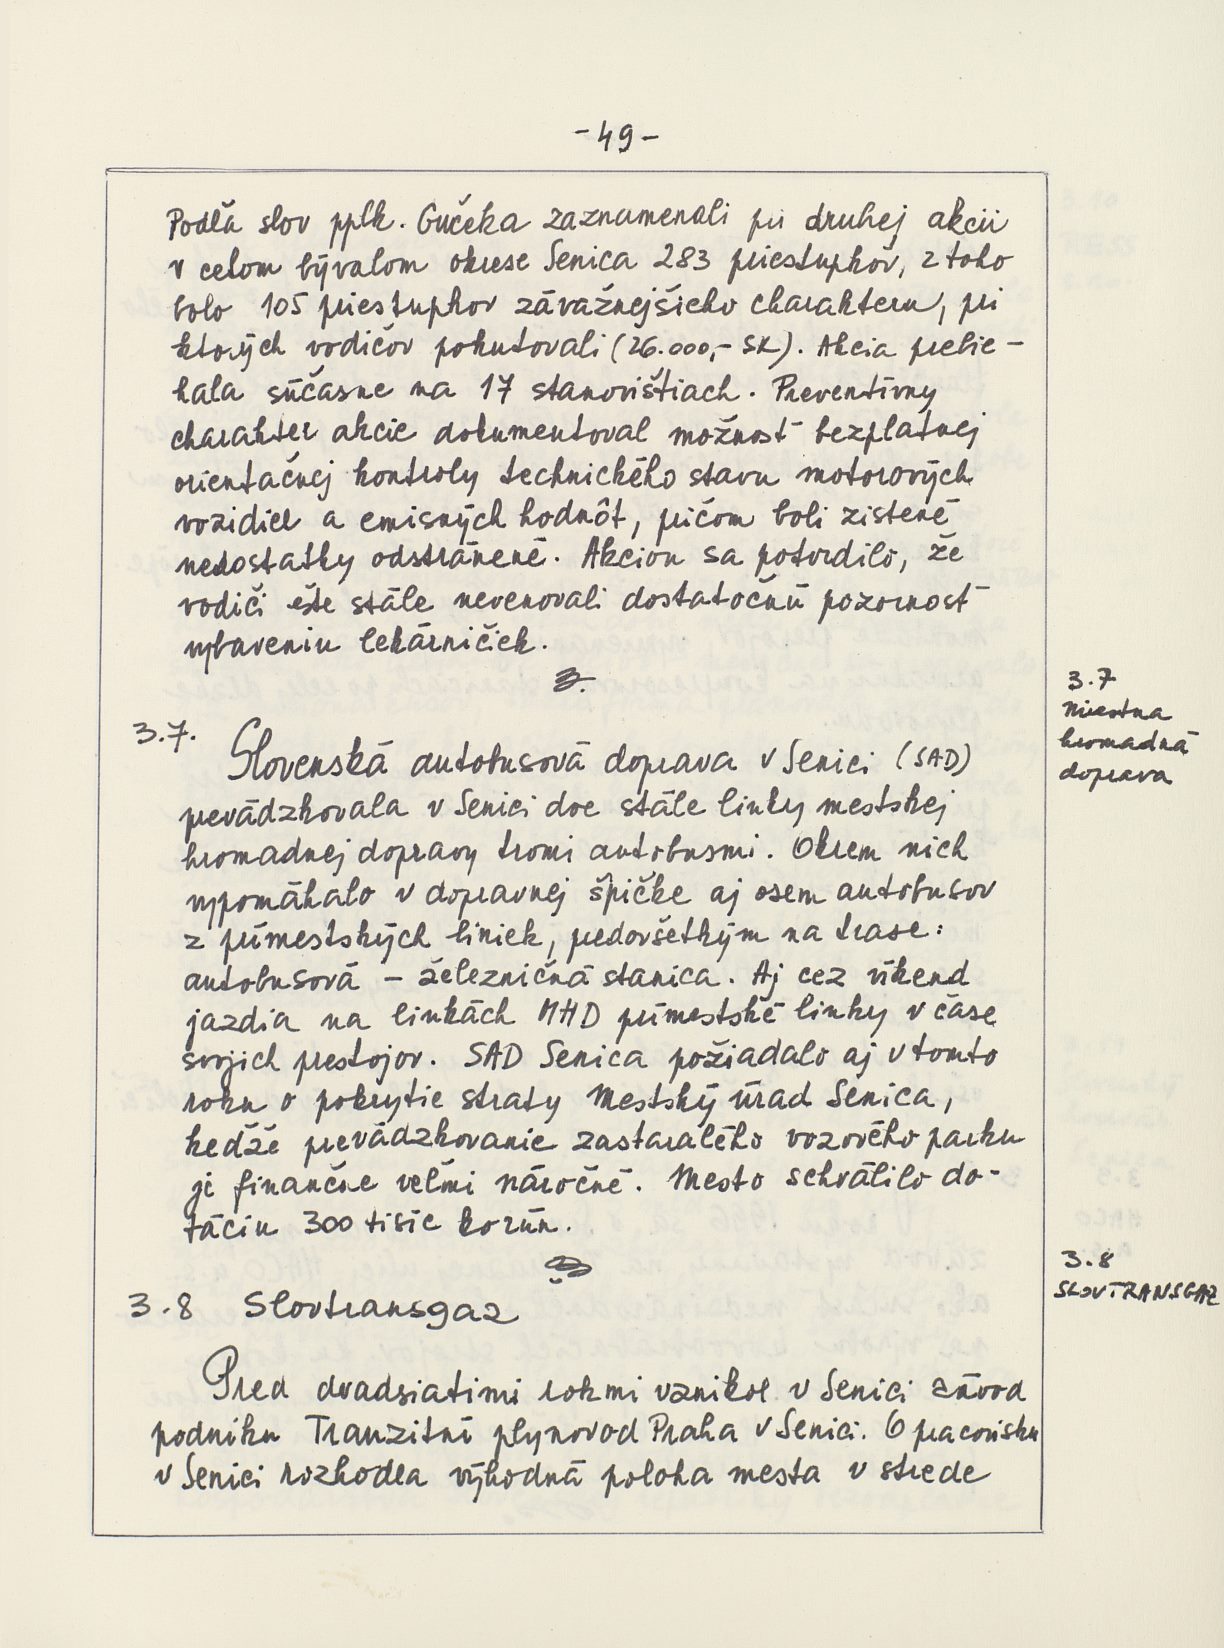 -49-
Podľa slov pplk. Gučeka zaznamenali pri druhej akcii
v celom bývalom okrese Senica 283 priestupkov, z toho
bolo 105 priestupkov závažnejšieho charakteru, pri
ktorých vodičov pokutovali (26.000,- SK). Akcia prebie-
hala súčasne na 17 stanovištiach. Preventívny
charakter akcie dokumentoval možnosť bezplatnej
orientačnej kontroly technického stavu motorových
vozidiel a emisných hodnôt, pričom boli zistené
nedostatky odstránené. Akciou sa potvrdilo, že
vodiči ešte stále nevenovali dostatočnú pozornosť
vybaveniu lekárničiek.
3.7.
Slovenská autobusová doprava v Senici (SAD)
prevádzkovala v Senici dve stále linky mestskej
hromadnej dopravy tromi autobusmi. Okrem nich
vypomáhalo v dopravnej špičke aj osem autobusov
z prímestských liniek, predovšetkým na trase:
autobusová - železničná stanica. Aj cez víkend
jazdia na linkách MHD prímestské linky v čase
svojich prestojov. SAD Senica požiadalo aj v tomto
roku o pokrytie straty Mestský úrad Senica,
keďže prevádzkovanie zastaralého vozového parku
je finančne veľmi náročné. Mesto schválilo do-
táciu 300 tisíc korún.
3.7
Miestna
hromadná
doprava
3.8 Slovtransgaz
3.8
SLOVTRANSGAZ
Pred dvadsiatimi rokmi vznikol v Senici závod
podniku Tranzitní plynovod Praha v Senici. O pracovisku
v Senici rozhodla výhodná poloha mesta v strede